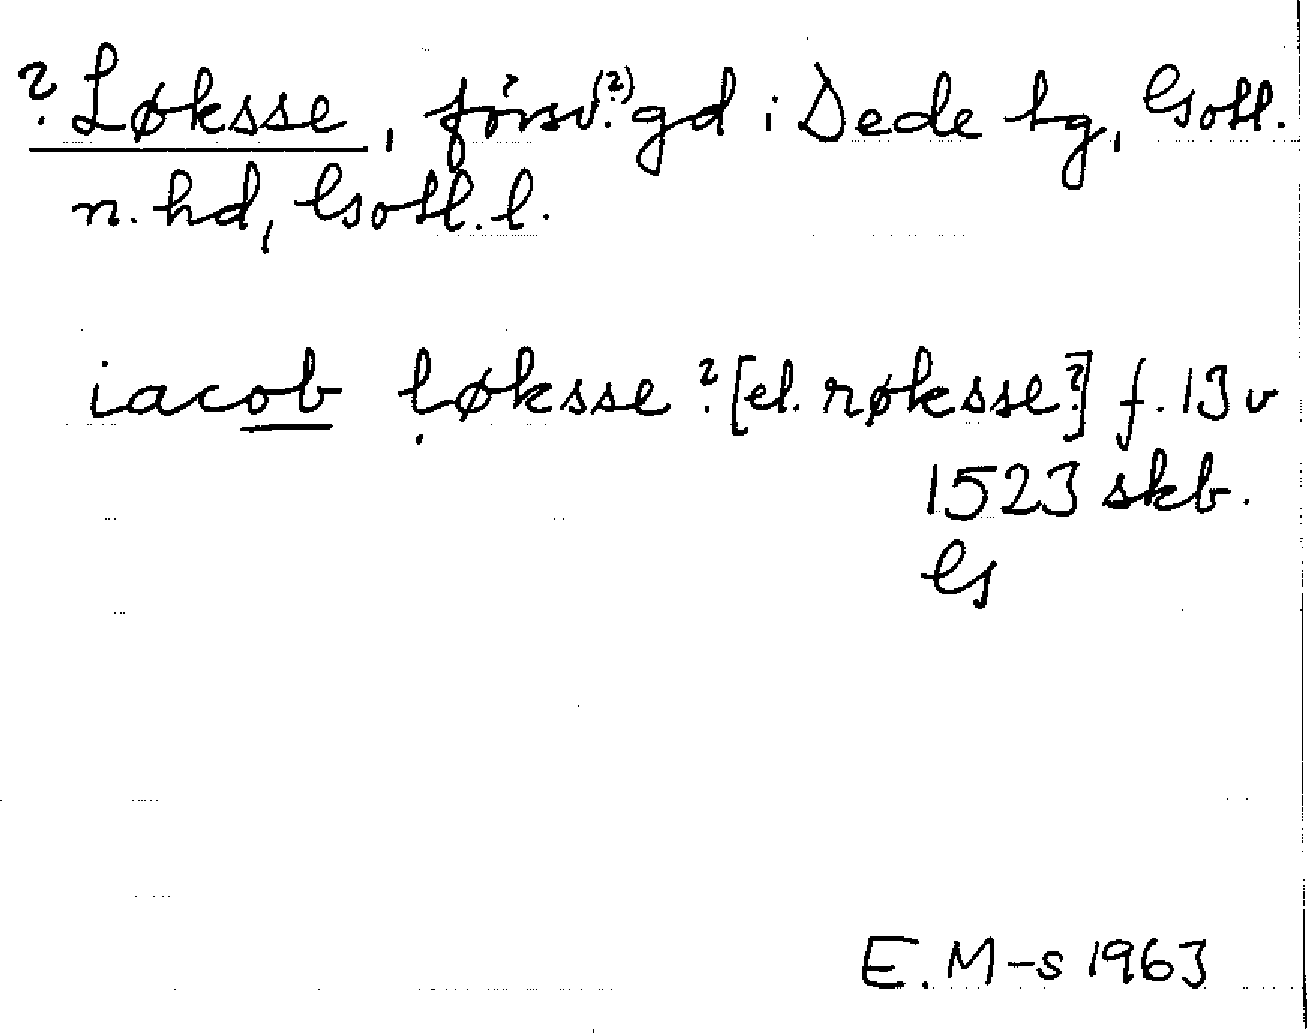 ? Løksse, försv.(?) gd i Dede tg, Gotl.
n. hd, Gotl. l.
iacob løksse? [el. røksse?] f. 13 v
1523 skb.
Gs
E. M-s 1963